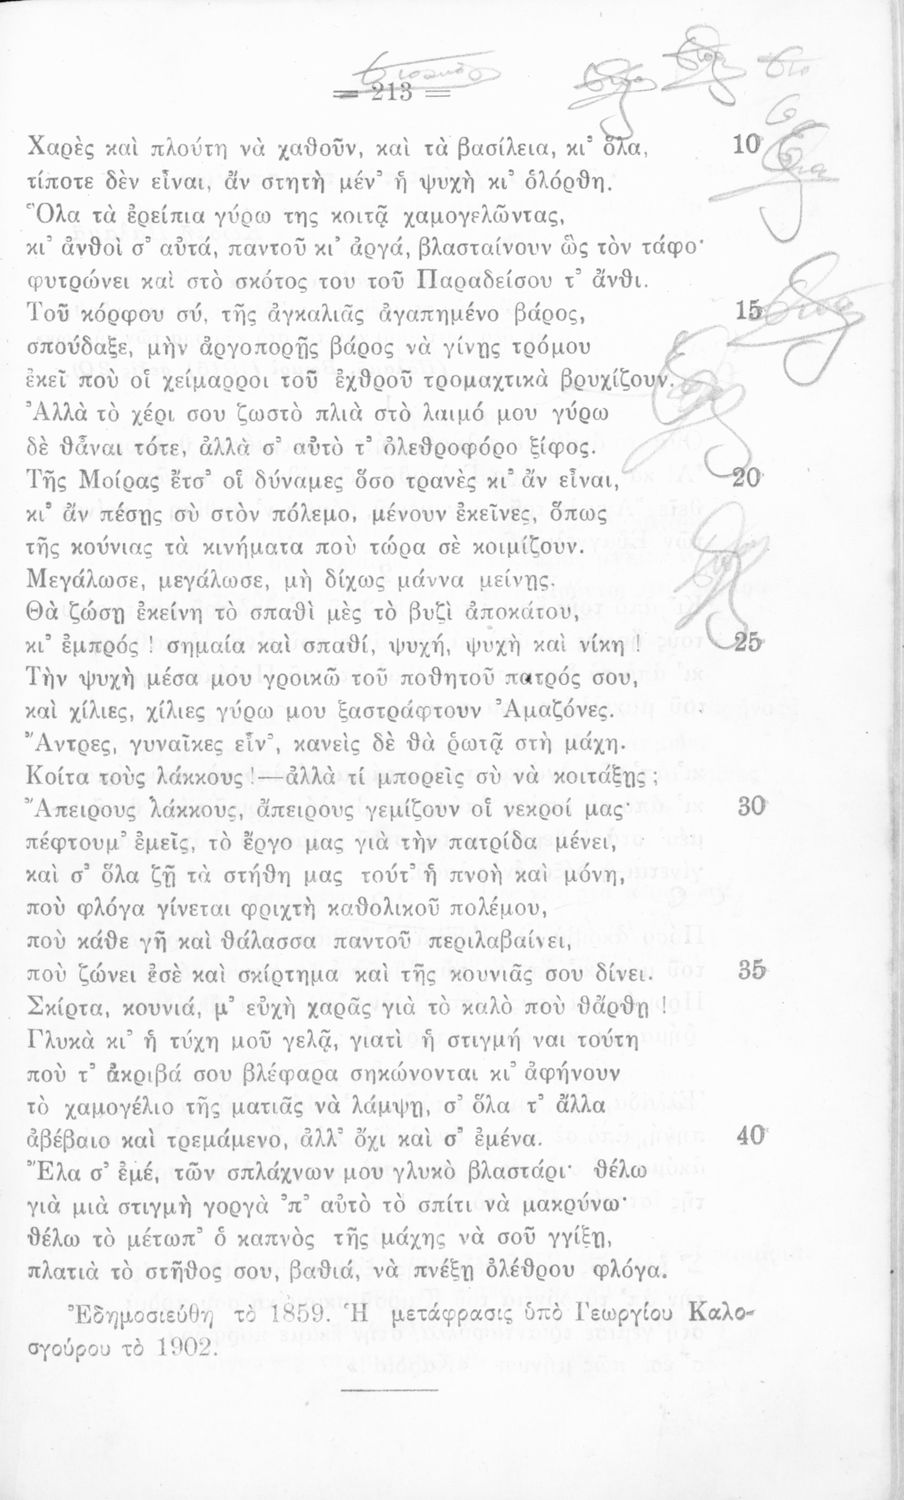 = 213 =
Χαρὲς καὶ πλούτη νὰ χαθοῦν, καὶ τὰ βασίλεια, κι᾿ ὅλα, 10
τίποτε δὲν εἶναι, ἄν στητὴ μέν᾿ ἡ ψυχὴ κι᾿ ὁλόρθη.
Ὅλα τὰ ἐρείπια γύρω της κοιτᾷ χαμογελῶντας,
κι᾿ ἀνθοὶ σ᾿ αὐτά, παντοῦ κι᾿ ἀργά, βλασταίνουν ὣς τὸν τάφο·
φυτρώνει καὶ στὸ σκότος του τοῦ Παραδείσου τ᾿ ἄνθι.
Τοῦ κόρφου σύ, τῆς ἀγκαλιᾶς ἀγαπημένο βάρος, 15
σπούδαξε, μὴν ἀργοπορῇς βάρος νὰ γίνῃς τρόμου
ἐκεῖ ποὺ οἱ χείμαρροι τοῦ ἐχθροῦ τρομαχτικὰ βρυχίζουν.
Ἀλλὰ τὸ χέρι σου ζωστὸ πλιὰ στὸ λαιμό μου γύρω
δὲ θἆναι τότε, ἀλλὰ σ᾿ αὐτὸ τ᾿ ὀλεθροφόρο ξίφος.
Τῆς Μοίρας ἔτσ᾿ οἱ δύναμες ὅσο τρανὲς κι᾿ ἂν εἶναι, 20
κι᾿ ἂν πέσῃς σὺ στὸν πόλεμο, μένουν ἐκεῖνες, ὅπως
τῆς κούνιας τὰ κινήματα ποὺ τώρα σὲ κοιμίζουν.
Μεγάλωσε, μεγάλωσε, μὴ δίχως μάννα μείνῃς.
Θὰ ζώσῃ ἐκείνη τὸ σπαθὶ μὲς τὸ βυζὶ ἀποκάτου,
κι᾿ ἐμπρός ! σημαία καὶ σπαθί, ψυχή, ψυχὴ καὶ νίκη ! 25
Τὴν ψυχὴ μέσα μου γροικῶ τοῦ ποθητοῦ πατρός σου,
καὶ χίλιες, χίλιες γύρω μου ξαστράφτουν Ἀμαζόνες.
Ἄντρες, γυναῖκες εἶν᾿, κανεὶς δὲ θὰ ῥωτᾷ στὴ μάχη.
Κοίτα τοὺς λάκκους !—ἀλλὰ τί μπορεῖς σὺ νὰ κοιτάξῃς ;
Ἄπειρους λάκκους, ἄπειρους γεμίζουν οἱ νεκροί μας· 30
πέφτουμ᾿ ἐμεῖς, τὸ ἔργο μας γιὰ τὴν πατρίδα μένει,
καὶ σ᾿ ὅλα ζῇ τὰ στήθη μας τούτ᾿ ἡ πνοὴ καὶ μόνη,
ποὺ φλόγα γίνεται φριχτὴ καθολικοῦ πολέμου,
ποὺ κάθε γῆ καὶ θάλασσα παντοῦ περιλαβαίνει,
ποὺ ζώνει ἐσὲ καὶ σκίρτημα καὶ τῆς κουνιᾶς σου δίνει. 35
Σκίρτα, κουνιά, μ᾿ εὐχὴ χαρᾶς γιὰ τὸ καλὸ ποὺ θἄρθῃ !
Γλυκὰ κι᾿ ἡ τύχη μοῦ γελᾷ, γιατὶ ἡ στιγμή ναι τούτη
ποὺ τ᾿ ἀκριβά σου βλέφαρα σηκώνονται κι᾿ ἀφήνουν
τὸ χαμογέλιο τῆς ματιᾶς νὰ λάμψῃ, σ᾿ ὅλα τ᾿ ἄλλα
ἀβέβαιο καὶ τρεμάμενο, ἀλλ᾿ ὄχι καὶ σ᾿ ἐμένα. 40
Ἔλα σ᾿ ἐμέ, τῶν σπλάχνων μου γλυκὸ βλαστάρι· θέλω
γιὰ μιὰ στιγμὴ γοργὰ ᾿π᾿ αὐτὸ τὸ σπίτι νὰ μακρύνω·
θέλω τὸ μέτωπ᾿ ὁ καπνὸς τῆς μάχης νὰ σοῦ γγίξῃ,
πλατιὰ τὸ στῆθος σου, βαθιά, νὰ πνέξῃ ὀλέθρου φλόγα.
Ἐδημοσιεύθη τὸ 1859. Ἡ μετάφρασις ὑπὸ Γεωργίου Καλο-
σγούρου τὸ 1902.